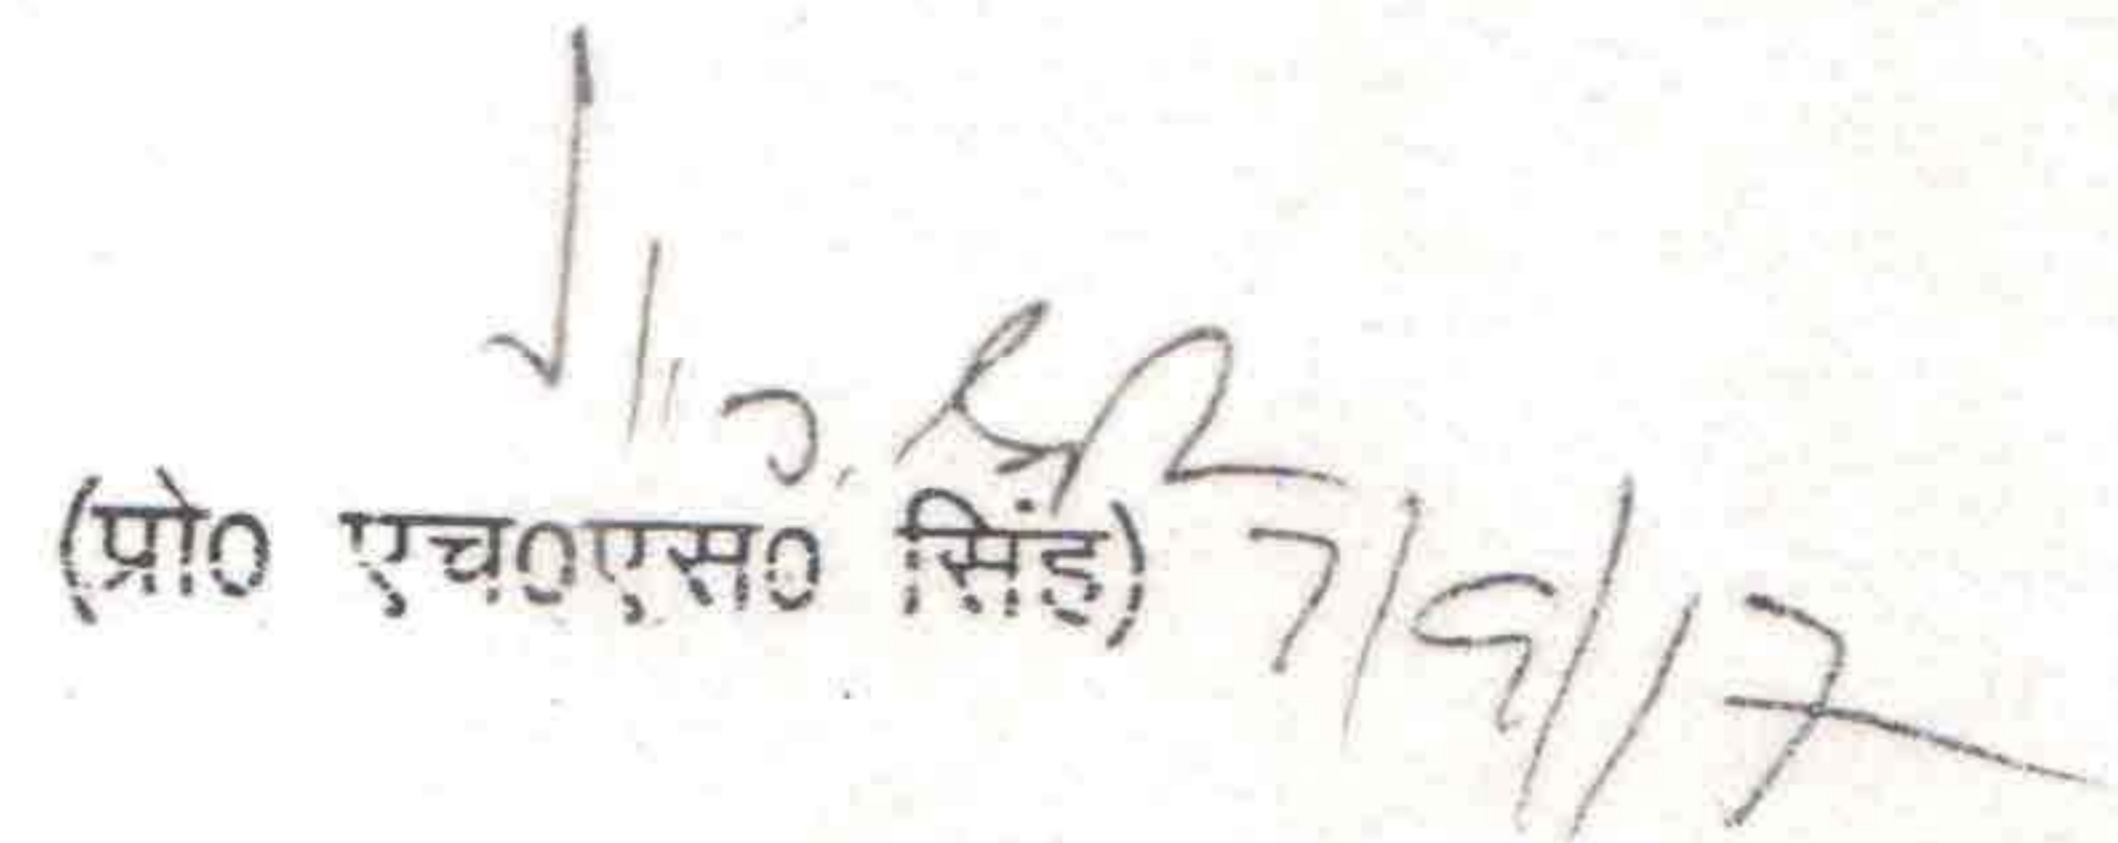 (प्रो० एच०एस० सिंह) 7/9/17